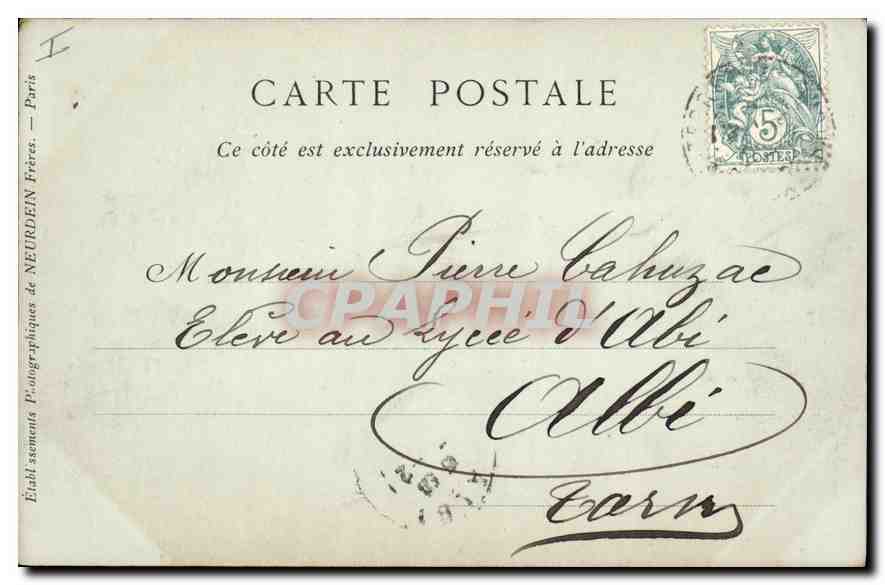 I
CARTE POSTALE
Ce côté est exclusivement réservé à l'adresse
5c
POSTES
Monsieur Pierre Cahuzac
Elève au Lycée d'Abi
Albi
Tarn
CPAPHIL
Etabl ssements Photographiques de NEURDEIN Frères. — Paris